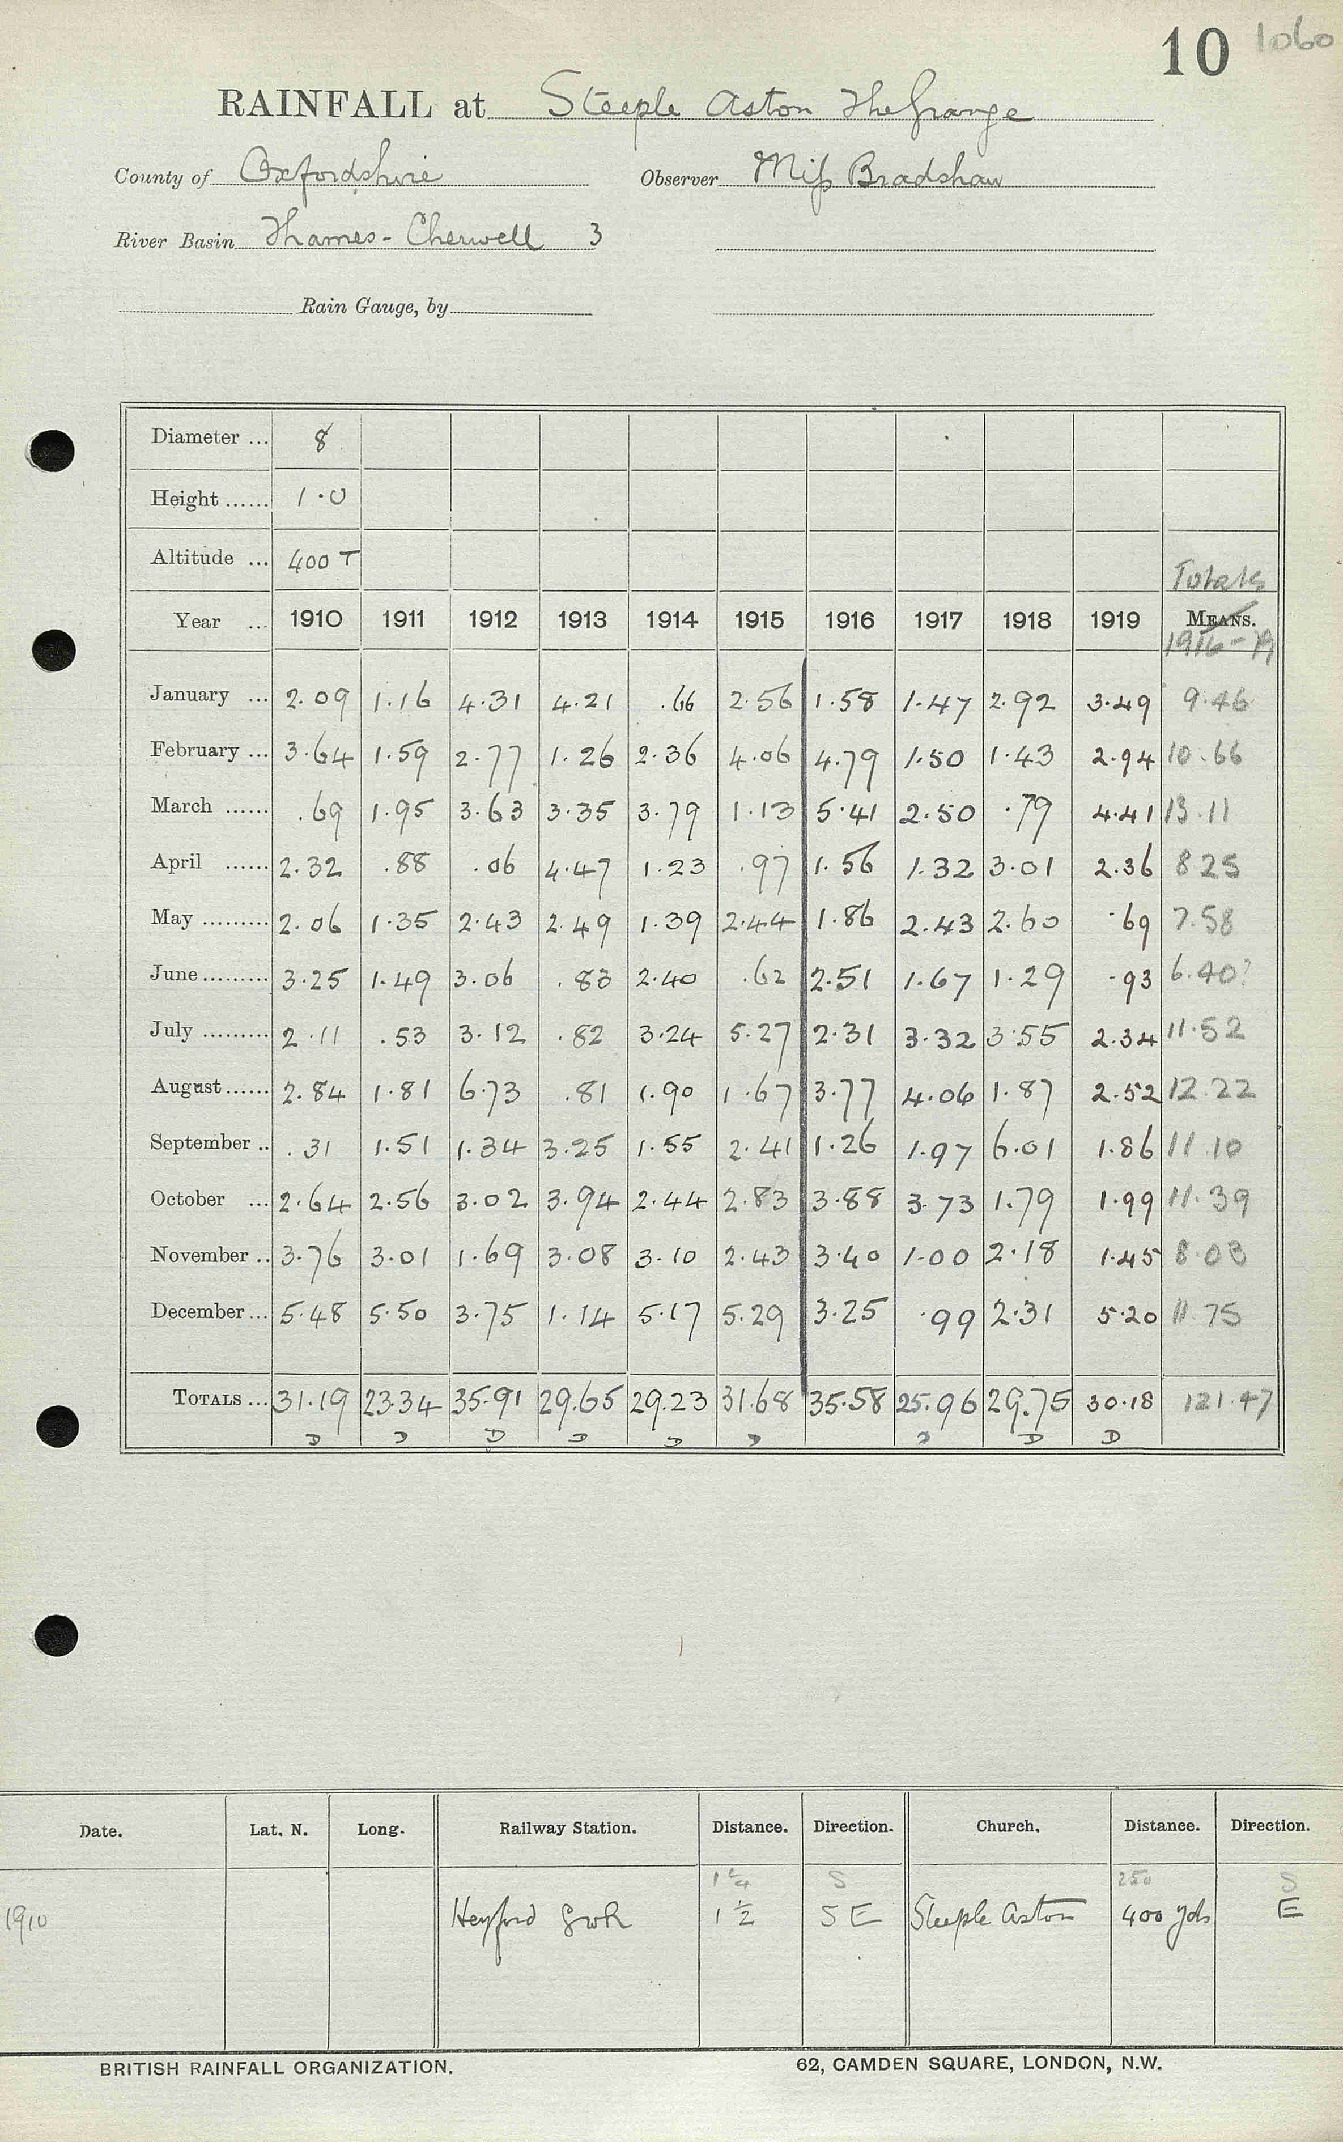 10 1060
RAINFALL at Steeple Aston The Grange
County of Oxfordshire Observer Miss Bradshaw
River Basin Thames - Cherwell 3
Rain Gauge, by
Diameter ... 8
Height ...... 1.0
Altitude ... 400 T
Totals
Year ... 1910 1911 1912 1913 1914 1915 1916 1917 1918 1919 MEANS.
1916-19
January ... 2.09 1.16 4.31 4.21 .66 2.56 1.58 1.47 2.92 3.49 9.46
February ... 3.64 1.59 2.77 1.26 2.36 4.06 4.79 1.50 1.43 2.94 10.66
March ...... .69 1.95 3.63 3.35 3.79 1.13 5.41 2.50 .79 4.41 13.11
April ...... 2.32 .88 .06 4.47 1.23 .97 1.56 1.32 3.01 2.36 8 25
May ......... 2.06 1.35 2.43 2.49 1.39 2.44 1.86 2.43 2.60 .69 7.58
June ......... 3.25 1.49 3.06 .83 2.40 .62 2.51 1.67 1.29 .93 6.40?
July ......... 2.11 .53 3.12 .82 3.24 5.27 2.31 3.32 3.55 2.34 11.52
August ...... 2.84 1.81 6.73 .81 1.90 1.67 3.77 4.06 1.87 2.52 12.22
September .. .31 1.51 1.34 3.25 1.55 2.41 1.26 1.97 6.01 1.86 11.10
October ... 2.64 2.56 3.02 3.94 2.44 2.83 3.88 3.73 1.79 1.99 11.39
November .. 3.76 3.01 1.69 3.08 3.10 2.43 3.40 1.00 2.18 1.45 8.03
December ... 5.48 5.50 3.75 1.14 5.17 5.29 3.25 .99 2.31 5.20 11.75
TOTALS ... 31.19 23.34 35.91 29.65 29.23 31.68 35.58 25.96 29.75 30.18 121.47
D D D D D D D D D
Date. Lat. N. Long. Railway Station. Distance. Direction. Church. Distance. Direction.
1 1/4 S 250 S
1910 Heyford GWR 1 1/2 SE Steeple Aston 400 yds E
BRITISH RAINFALL ORGANIZATION. 62, CAMDEN SQUARE, LONDON, N.W.